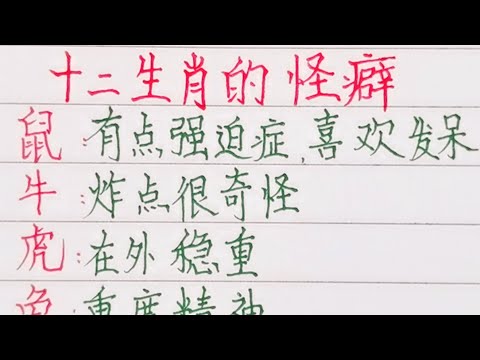 十二生肖的怪癖
鼠:有点强迫症,喜欢发呆
牛:炸点很奇怪
虎:在外稳重
兔:重度精神